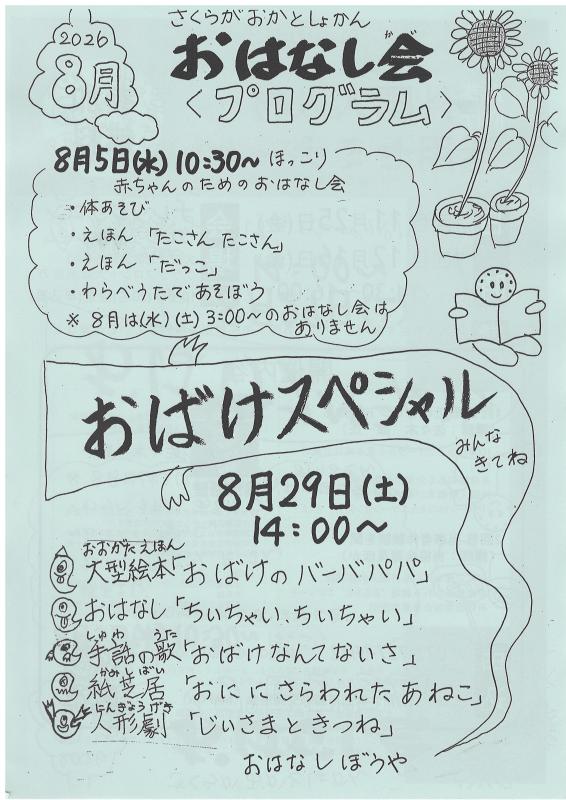 さくらがおかとしょかん
2026
8月
おはなし会
〈プログラム〉
8月5日(水) 10:30～ ほっこり
赤ちゃんのためのおはなし会
・体あそび
・えほん「たこさん たこさん」
・えほん「だっこ」
・わらべうたであそぼう
※ 8月は(水)(土) 3:00～のおはなし会は
ありません
おばけスペシャル
みんな
きてね
8月29日(土)
14:00～
おおがたえほん
大型絵本「おばけのバーバパパ」
おはなし「ちいちゃい、ちいちゃい」
しゅわ うた
手話の歌「おばけなんてないさ」
かみしばい
紙芝居「おににさらわれたあねこ」
にんぎょうげき
人形劇「じいさまときつね」
おはなしぼうや